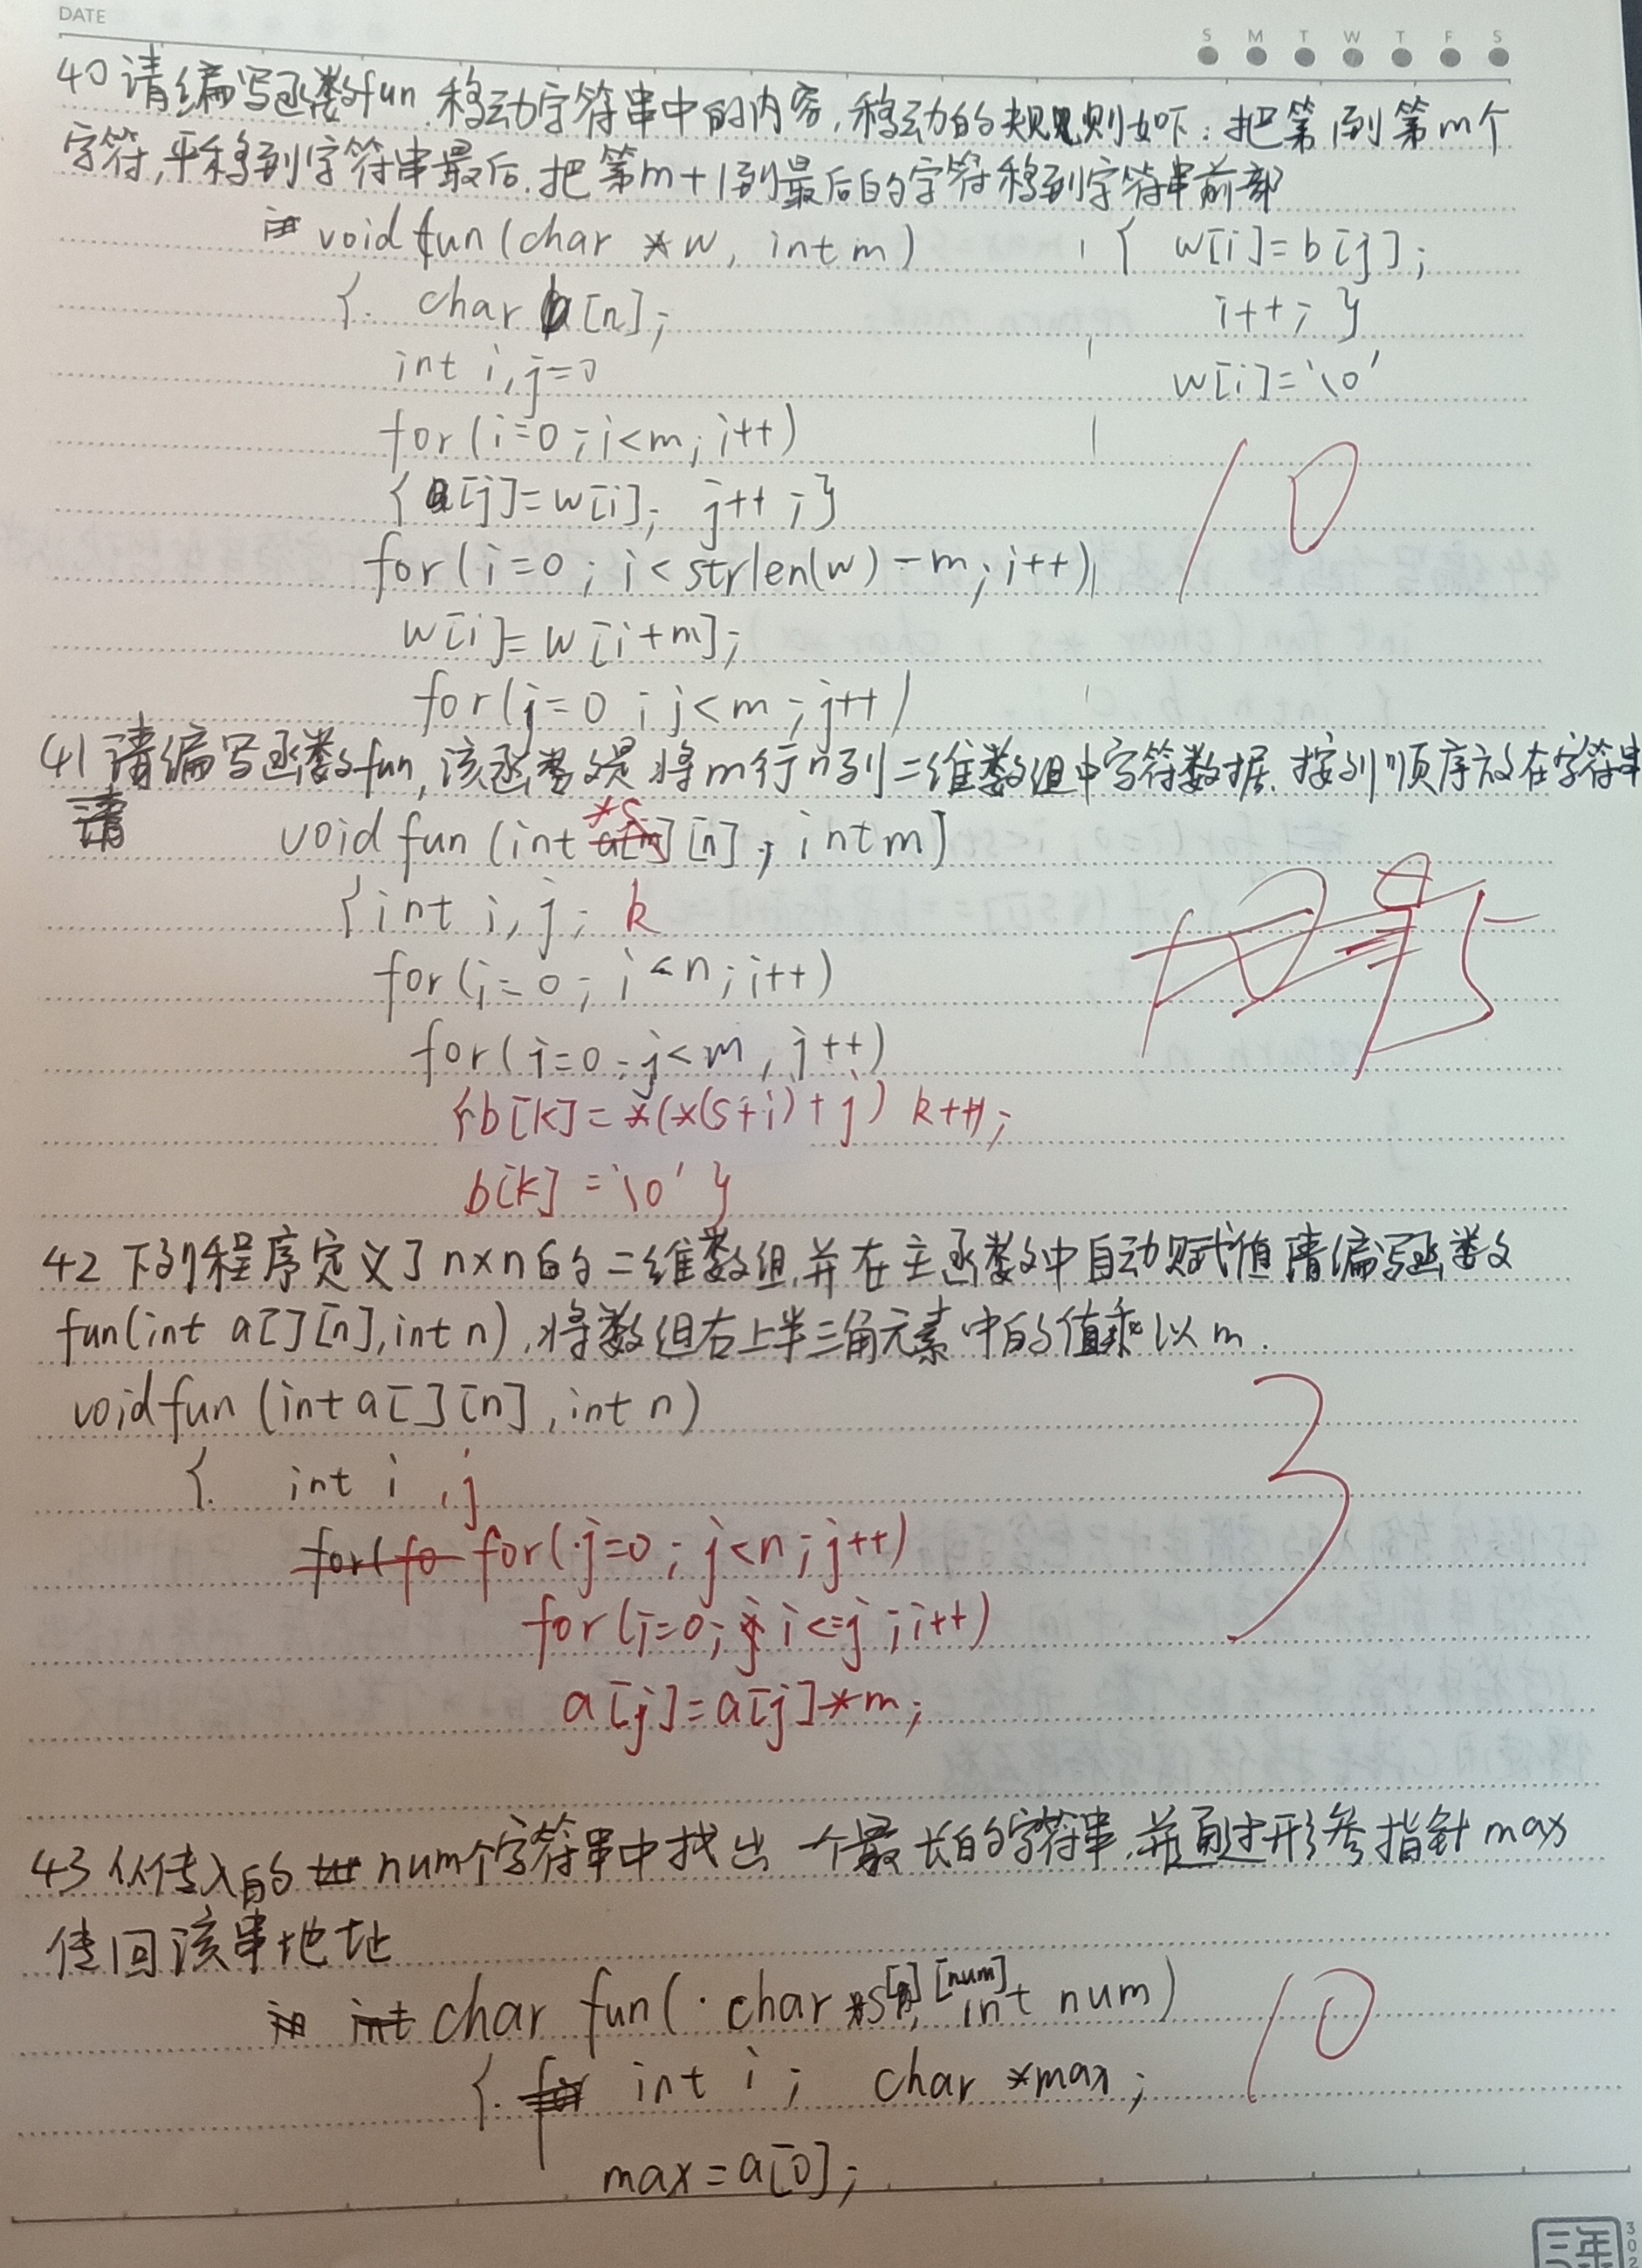 DATE
S M T W T F S
40 请编写函数fun 移动字符串中的内容,移动的规则如下:把第1到第m个
字符,平移到字符串最后,把第m+1到最后的字符移到字符串前部
void fun(char *w, int m)
{ char a[n];
int i,j=0
for(i=0;i<m;i++)
{a[j]=w[i]; j++;}
for(i=0;i<strlen(w)-m;i++)
w[i]=w[i+m];
for(j=0;j<m;j++)
{ w[i]=b[j];
i++; }
w[i]='\0'
10
41 请编写函数fun,该函数是将m行n列二维数组中字符数据,按列顺序放在字符串
请 void fun(int *s a[m][n], int m]
{int i,j; k
for(i=0;i<n;i++)
for(j=0;j<m,j++)
{b[k]=*(*(s+i)+j) k++;
b[k]='\0'}
42 下列程序定义了n×n的二维数组,并在主函数中自动赋值请编写函数
fun(int a[][n],int n),将数组右上半三角元素中的值乘以m.
void fun(int a[][n],int n)
{ int i,j
for(fo for(j=0;j<n;j++)
for(i=0;j i<=j;i++)
a[j]=a[j]*m;
3
43 从传入的num个字符串中找出一个最长的字符串,并通过形参指针max
传回该串地址
int char fun(char *s[][num], int num)
{ for int i; char *max;
max=a[0];
10
三年